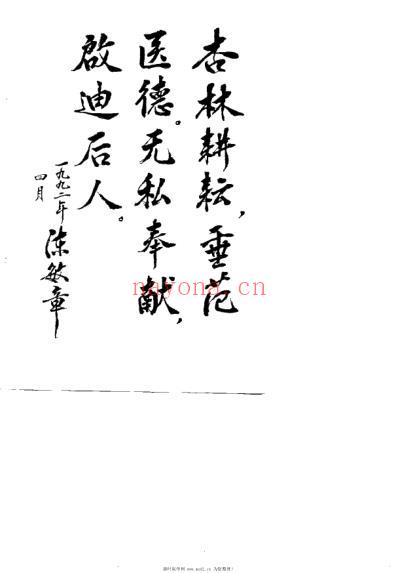 杏林耕耘，垂范
医德。无私奉献，
啟迪后人。
一九九二年
四月
陈敏章
nayona.cn